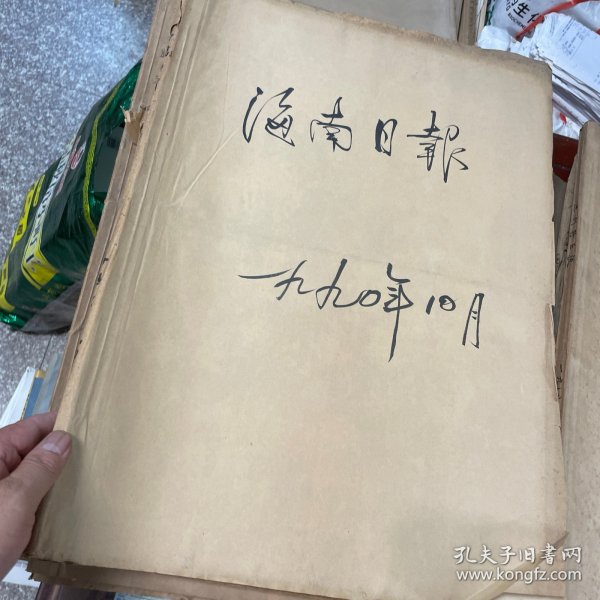 海南日報
一九九〇年10月
孔夫子旧書网
www.kongfz.com